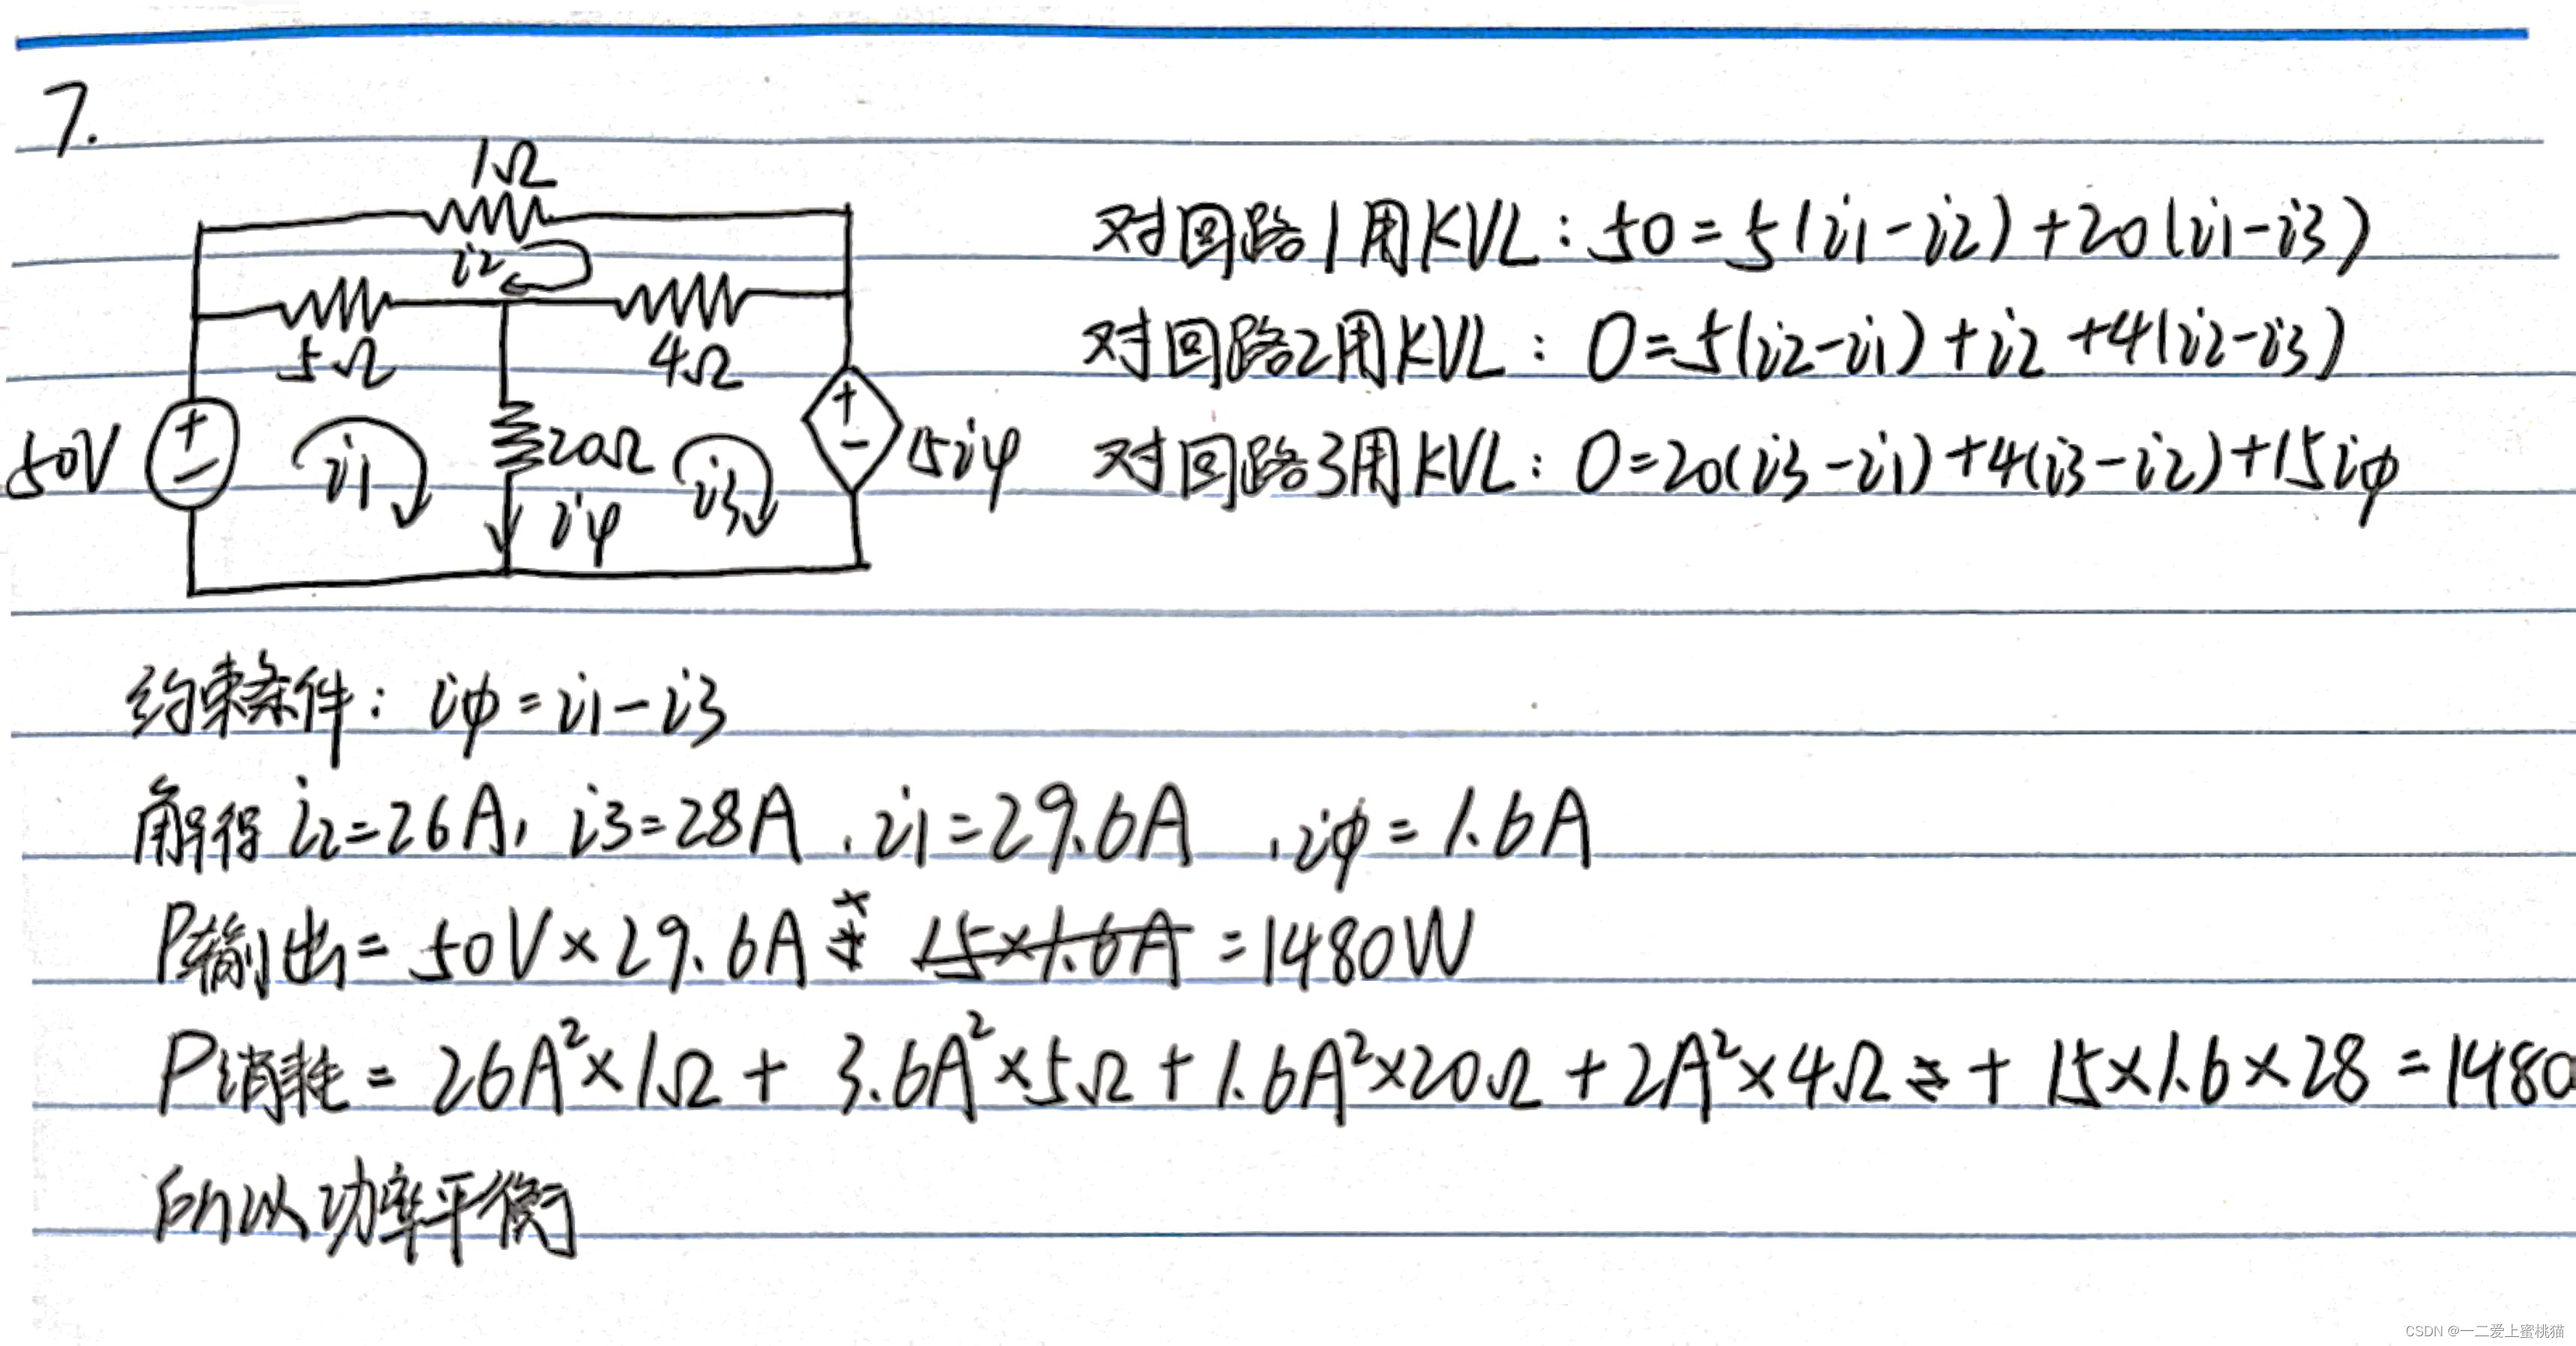 7.
1Ω
i2
5Ω
4Ω
50V
i1
20Ω
iφ
i3
15iφ
对回路1用KVL:50=5(i1-i2)+20(i1-i3)
对回路2用KVL:0=5(i2-i1)+i2+4(i2-i3)
对回路3用KVL:0=20(i3-i1)+4(i3-i2)+15iφ
约束条件:iφ=i1-i3
解得 i2=26A,i3=28A,i1=29.6A,iφ=1.6A
P输出=50V×29.6A 15×1.6A=1480W
P消耗=26A²×1Ω+3.6A²×5Ω+1.6A²×20Ω+2A²×4Ω+15×1.6×28=1480
所以功率平衡
CSDN @一二爱上蜜桃猫